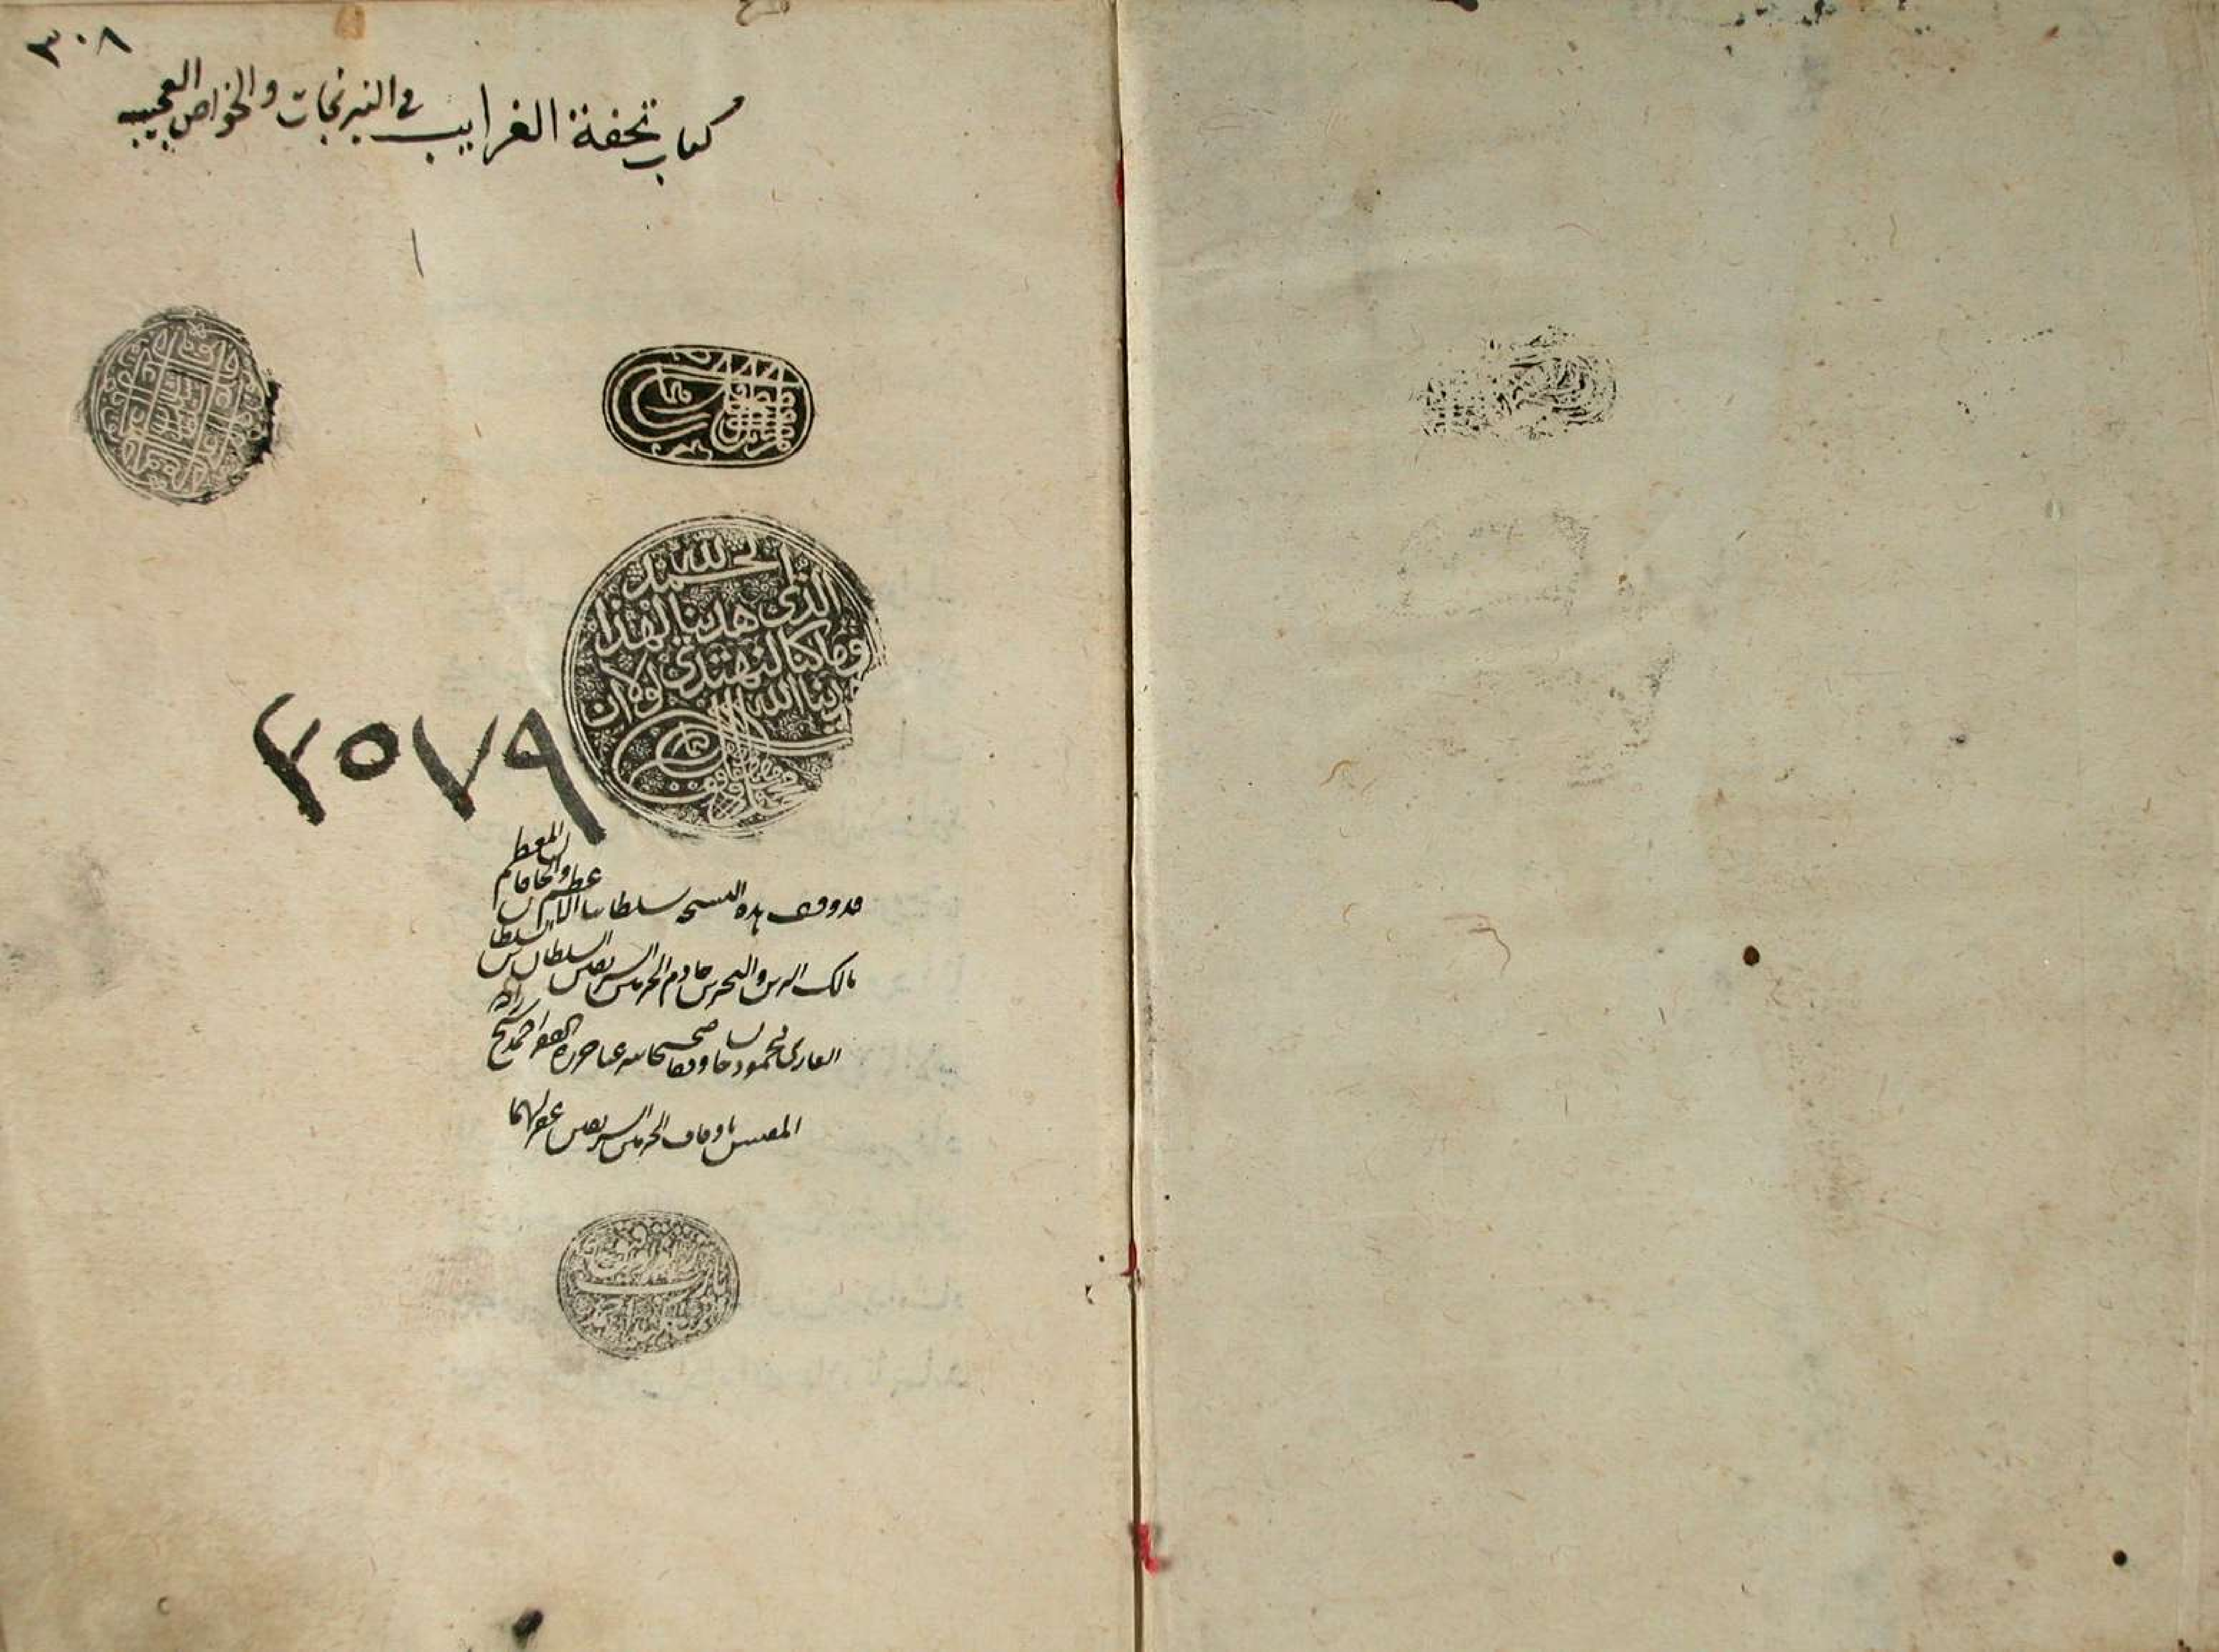 ٣٠٨
كتاب تحفة الغرايب في النيرنجات والخواص العجيبه
الحمد لله
الذي هدينا لهذا
وما كنا لنهتدي لولا ان
هدينا الله
٢٥٧٩
قد وقف هذه النسخه سلطاننا الاعظم والخاقان المعظم
مالك البرين والبحرين خادم الحرمين الشريفين السلطان بن السلطان
السلطان الغازي محمود خان وقفا صحيحا شرعيا حرره الفقير احمد شيخ زاده
المفتش باوقاف الحرمين الشريفين غفر لهما